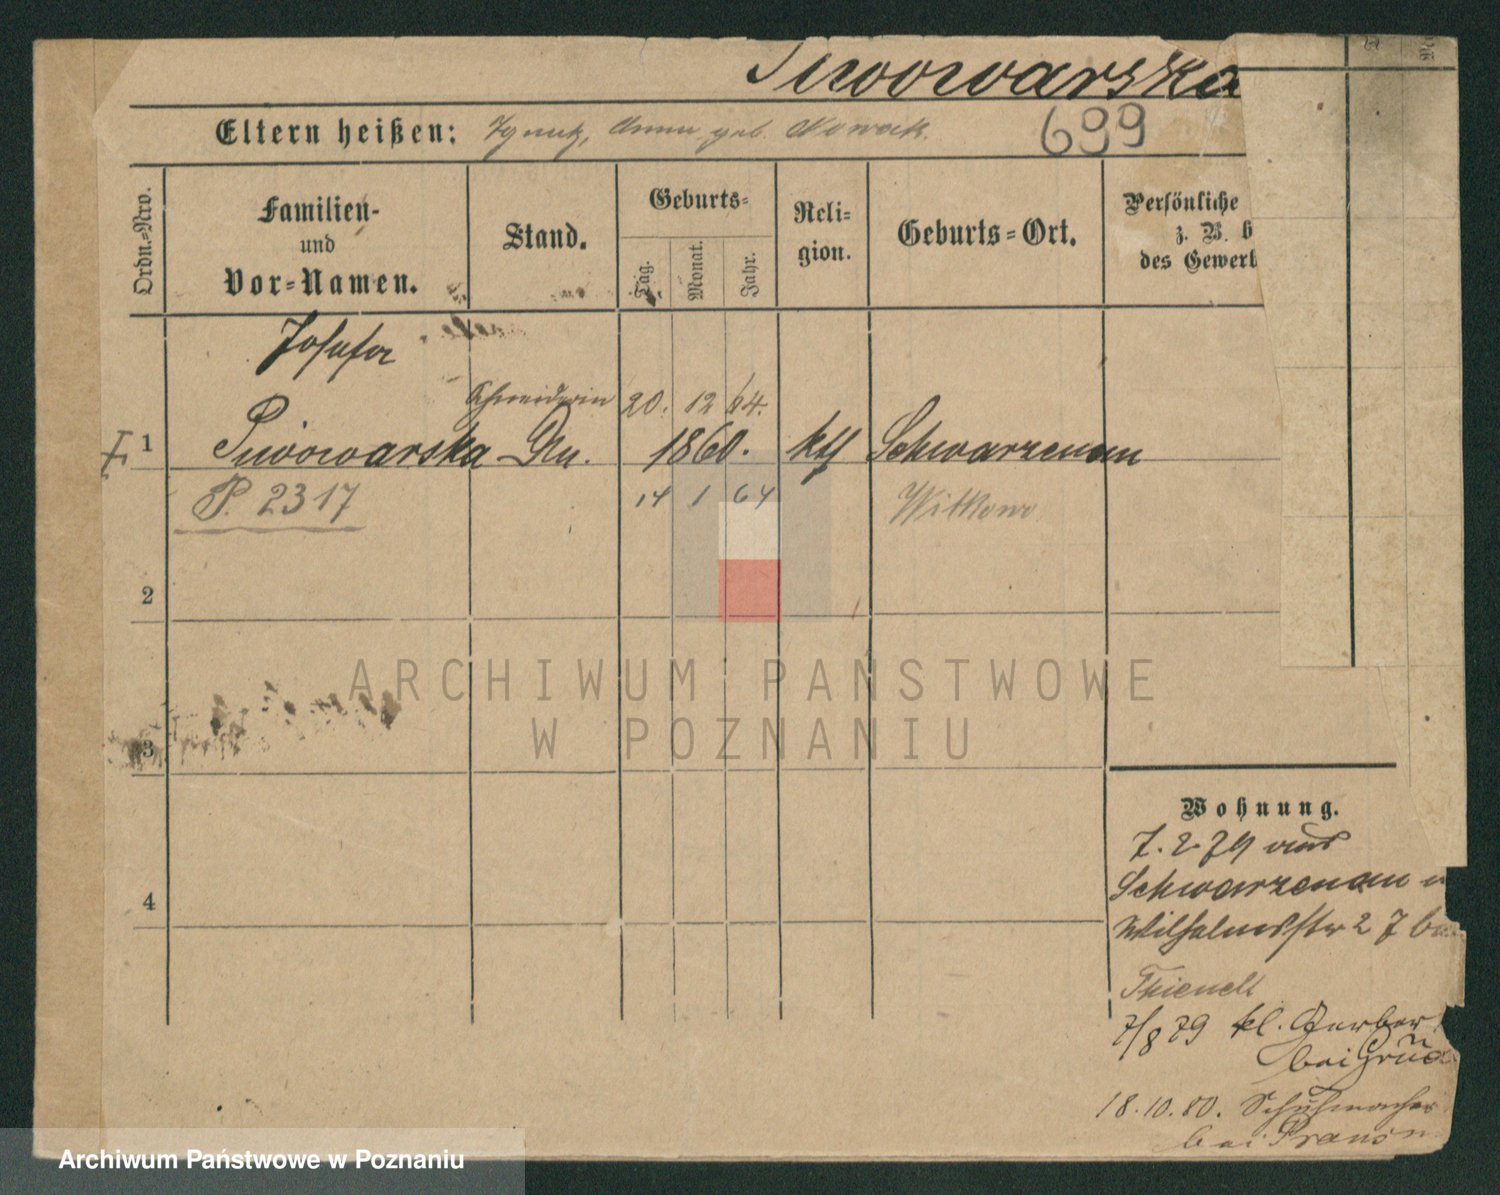 Piwowarska
Eltern heißen: Ignatz, Anna geb. Nowak.
699
Ordn.-Nro.
Familien-
und
Vor-Namen.
Stand.
Geburts-
Tag.
Monat.
Jahr.
Reli-
gion.
Geburts-Ort.
Persönliche
z. B. b
des Gewerb
Josefa
Schneiderin 20. 12 64.
1 Piwowarska 1860. kth Schwarzenau
P. 2317 14 1 64 Witkowo
2
3
4
ARCHIWUM PAŃSTWOWE
W POZNANIU
Wohnung.
7. 2. 79 aus
Schwarzenau n
Wilhelmsstr 27 bei
Thienelt
7/8 79 kl. Gerber
bei
18. 10. 80. Schuhmacher
bei
Archiwum Państwowe w Poznaniu